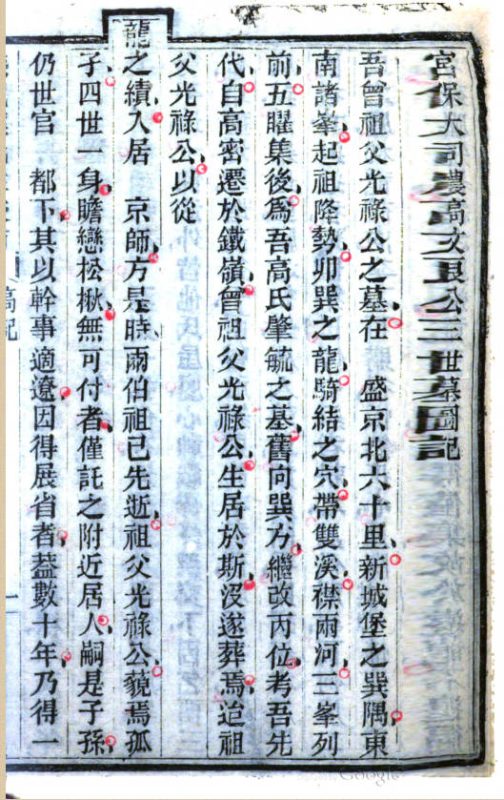 宮保大司農高文良公三世墓圖記
吾曾祖父光祿公之墓在 盛京北六十里新城堡之巽隅東
南諸峯起祖降勢卯巽之龍騎結之穴帶雙溪襟兩河三峯列
前五曜集後爲吾高氏肇毓之墓舊向巽方繼改丙位考吾先
代自高密遷於鐵嶺曾祖父光祿公生居於斯沒遂葬焉迨祖
父光祿公以從
龍之績入居 京師方是時兩伯祖已先逝祖父光祿公藐焉孤
子四世一身瞻戀松楸無可付者僅託之附近居人嗣是子孫
仍世官 都下其以幹事適遼因得展省者葢數十年乃得一
Google